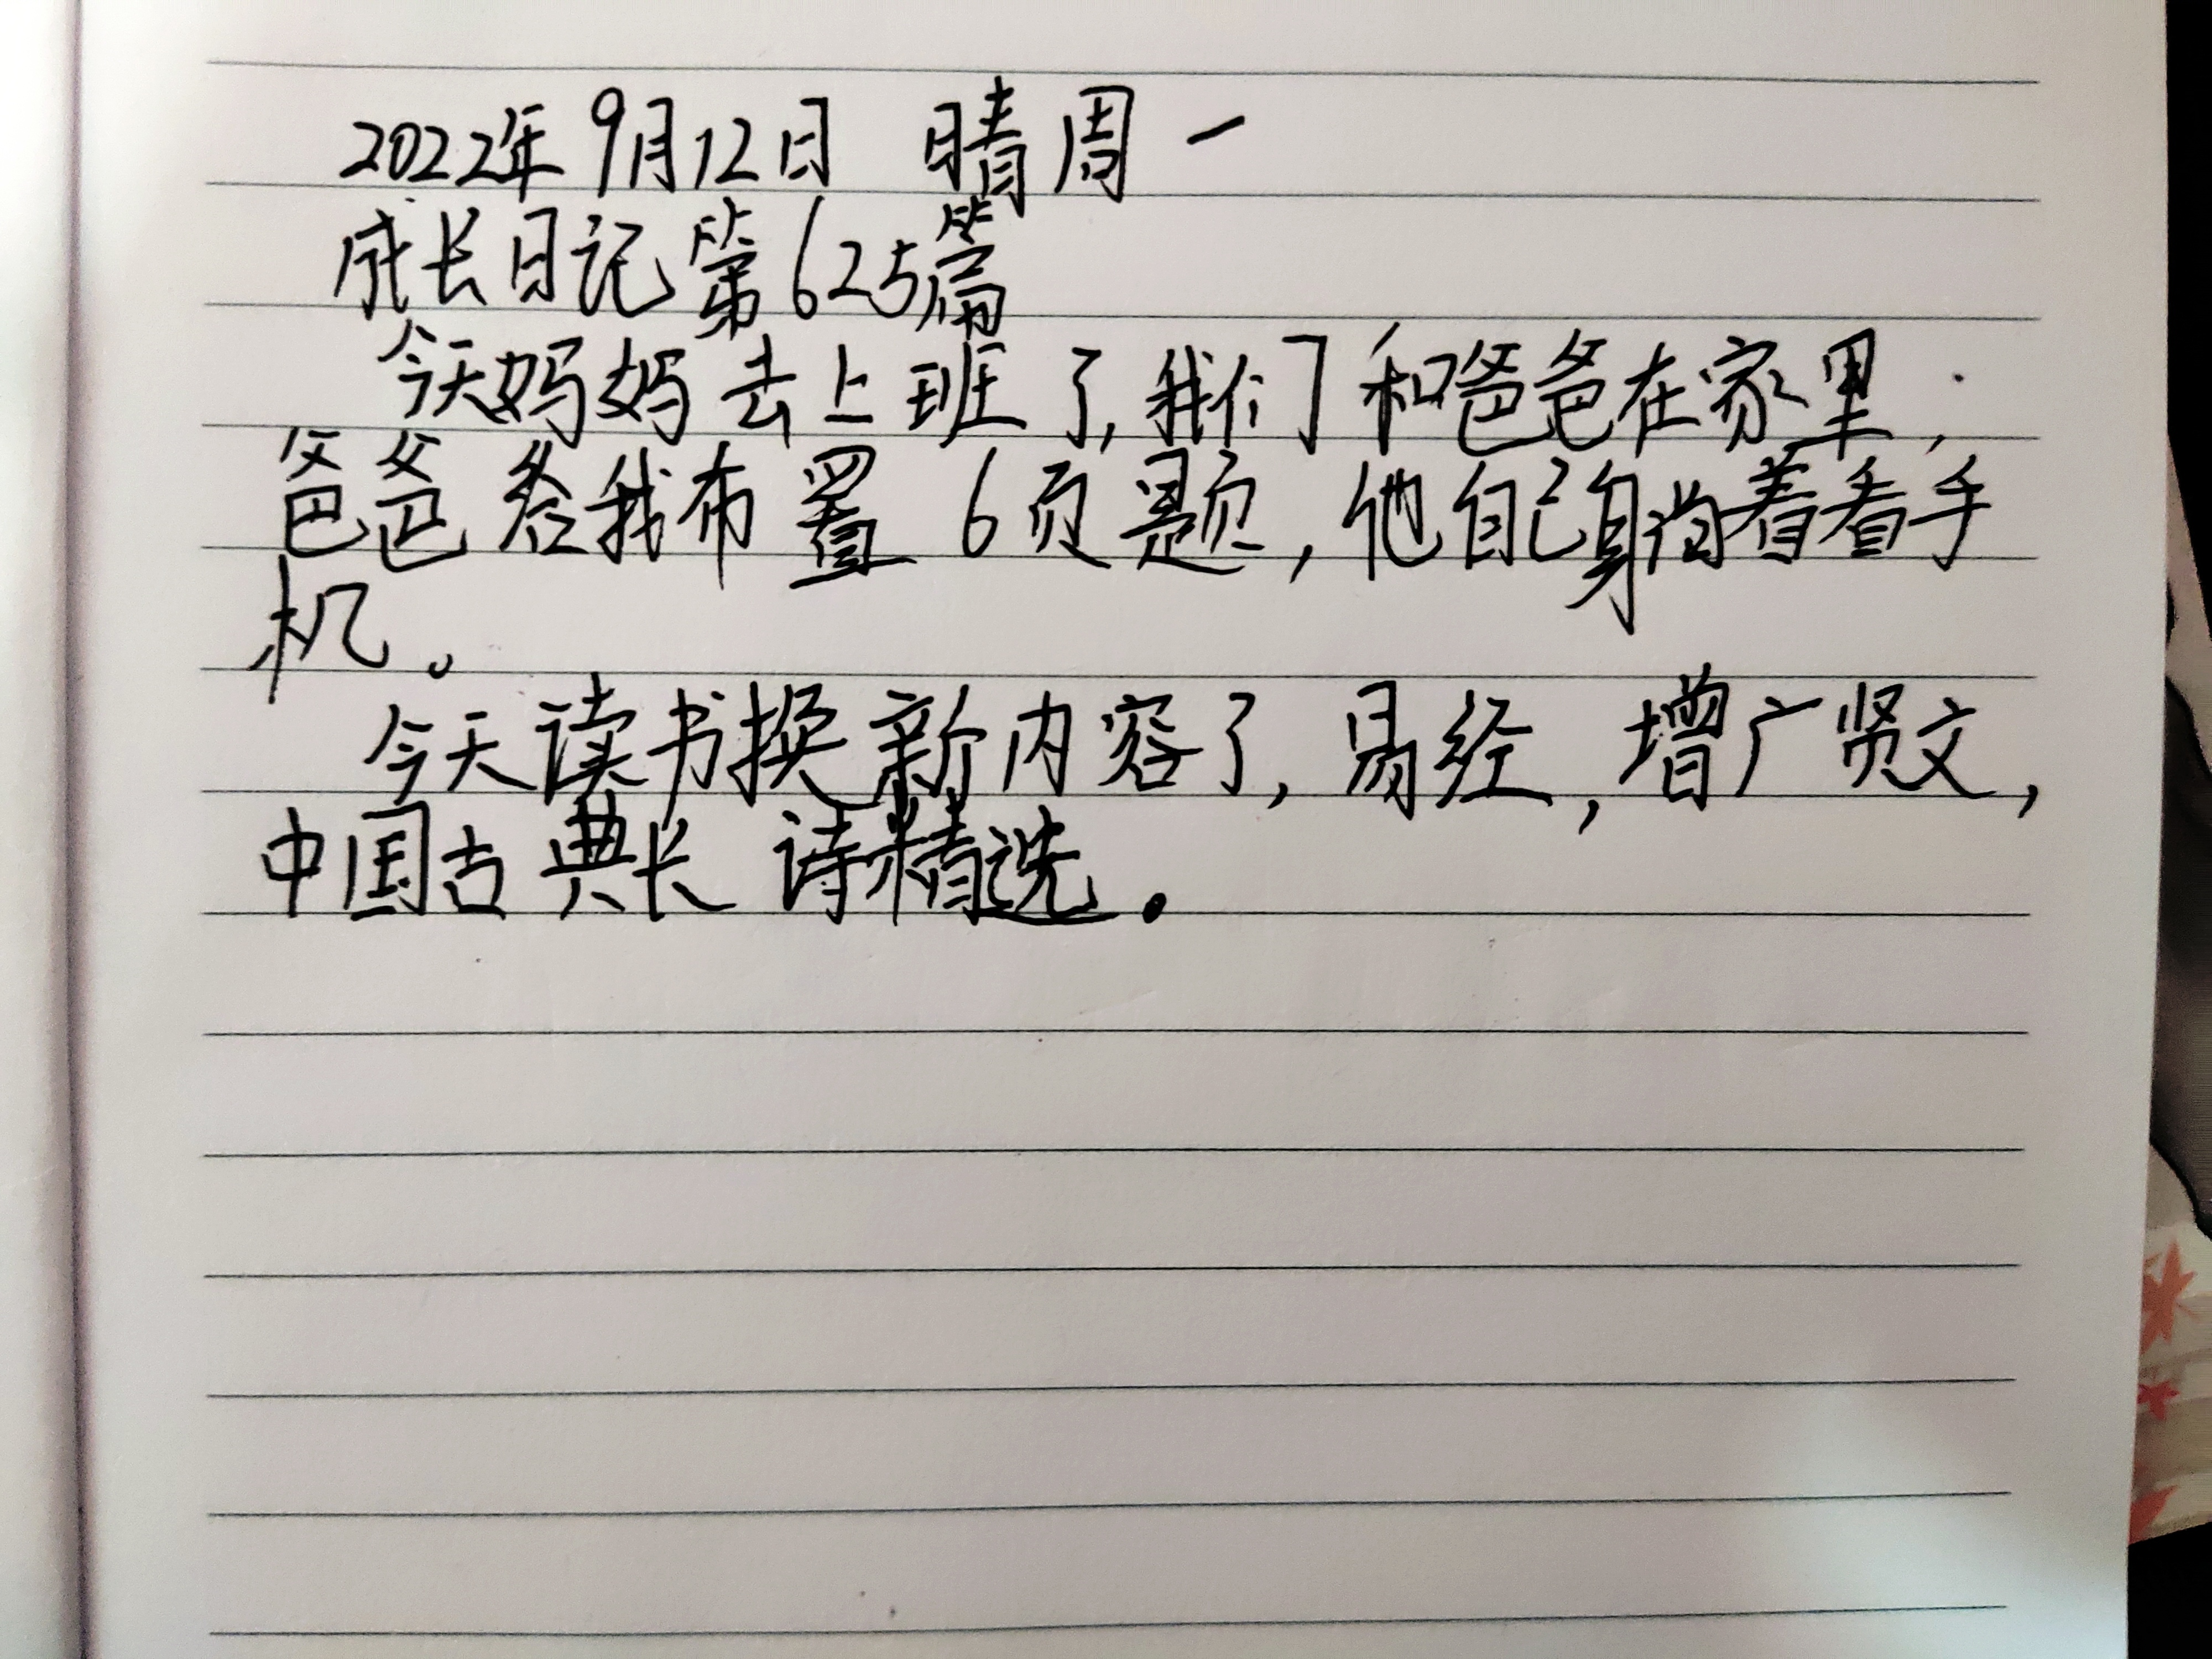 2022年9月12日 晴 周一
成长日记第625篇
今天妈妈去上班了,我们和爸爸在家里,
爸爸给我布置6页题,他自己躺着看手
机。
今天读书换新内容了,易经,增广贤文,
中国古典长诗精选.